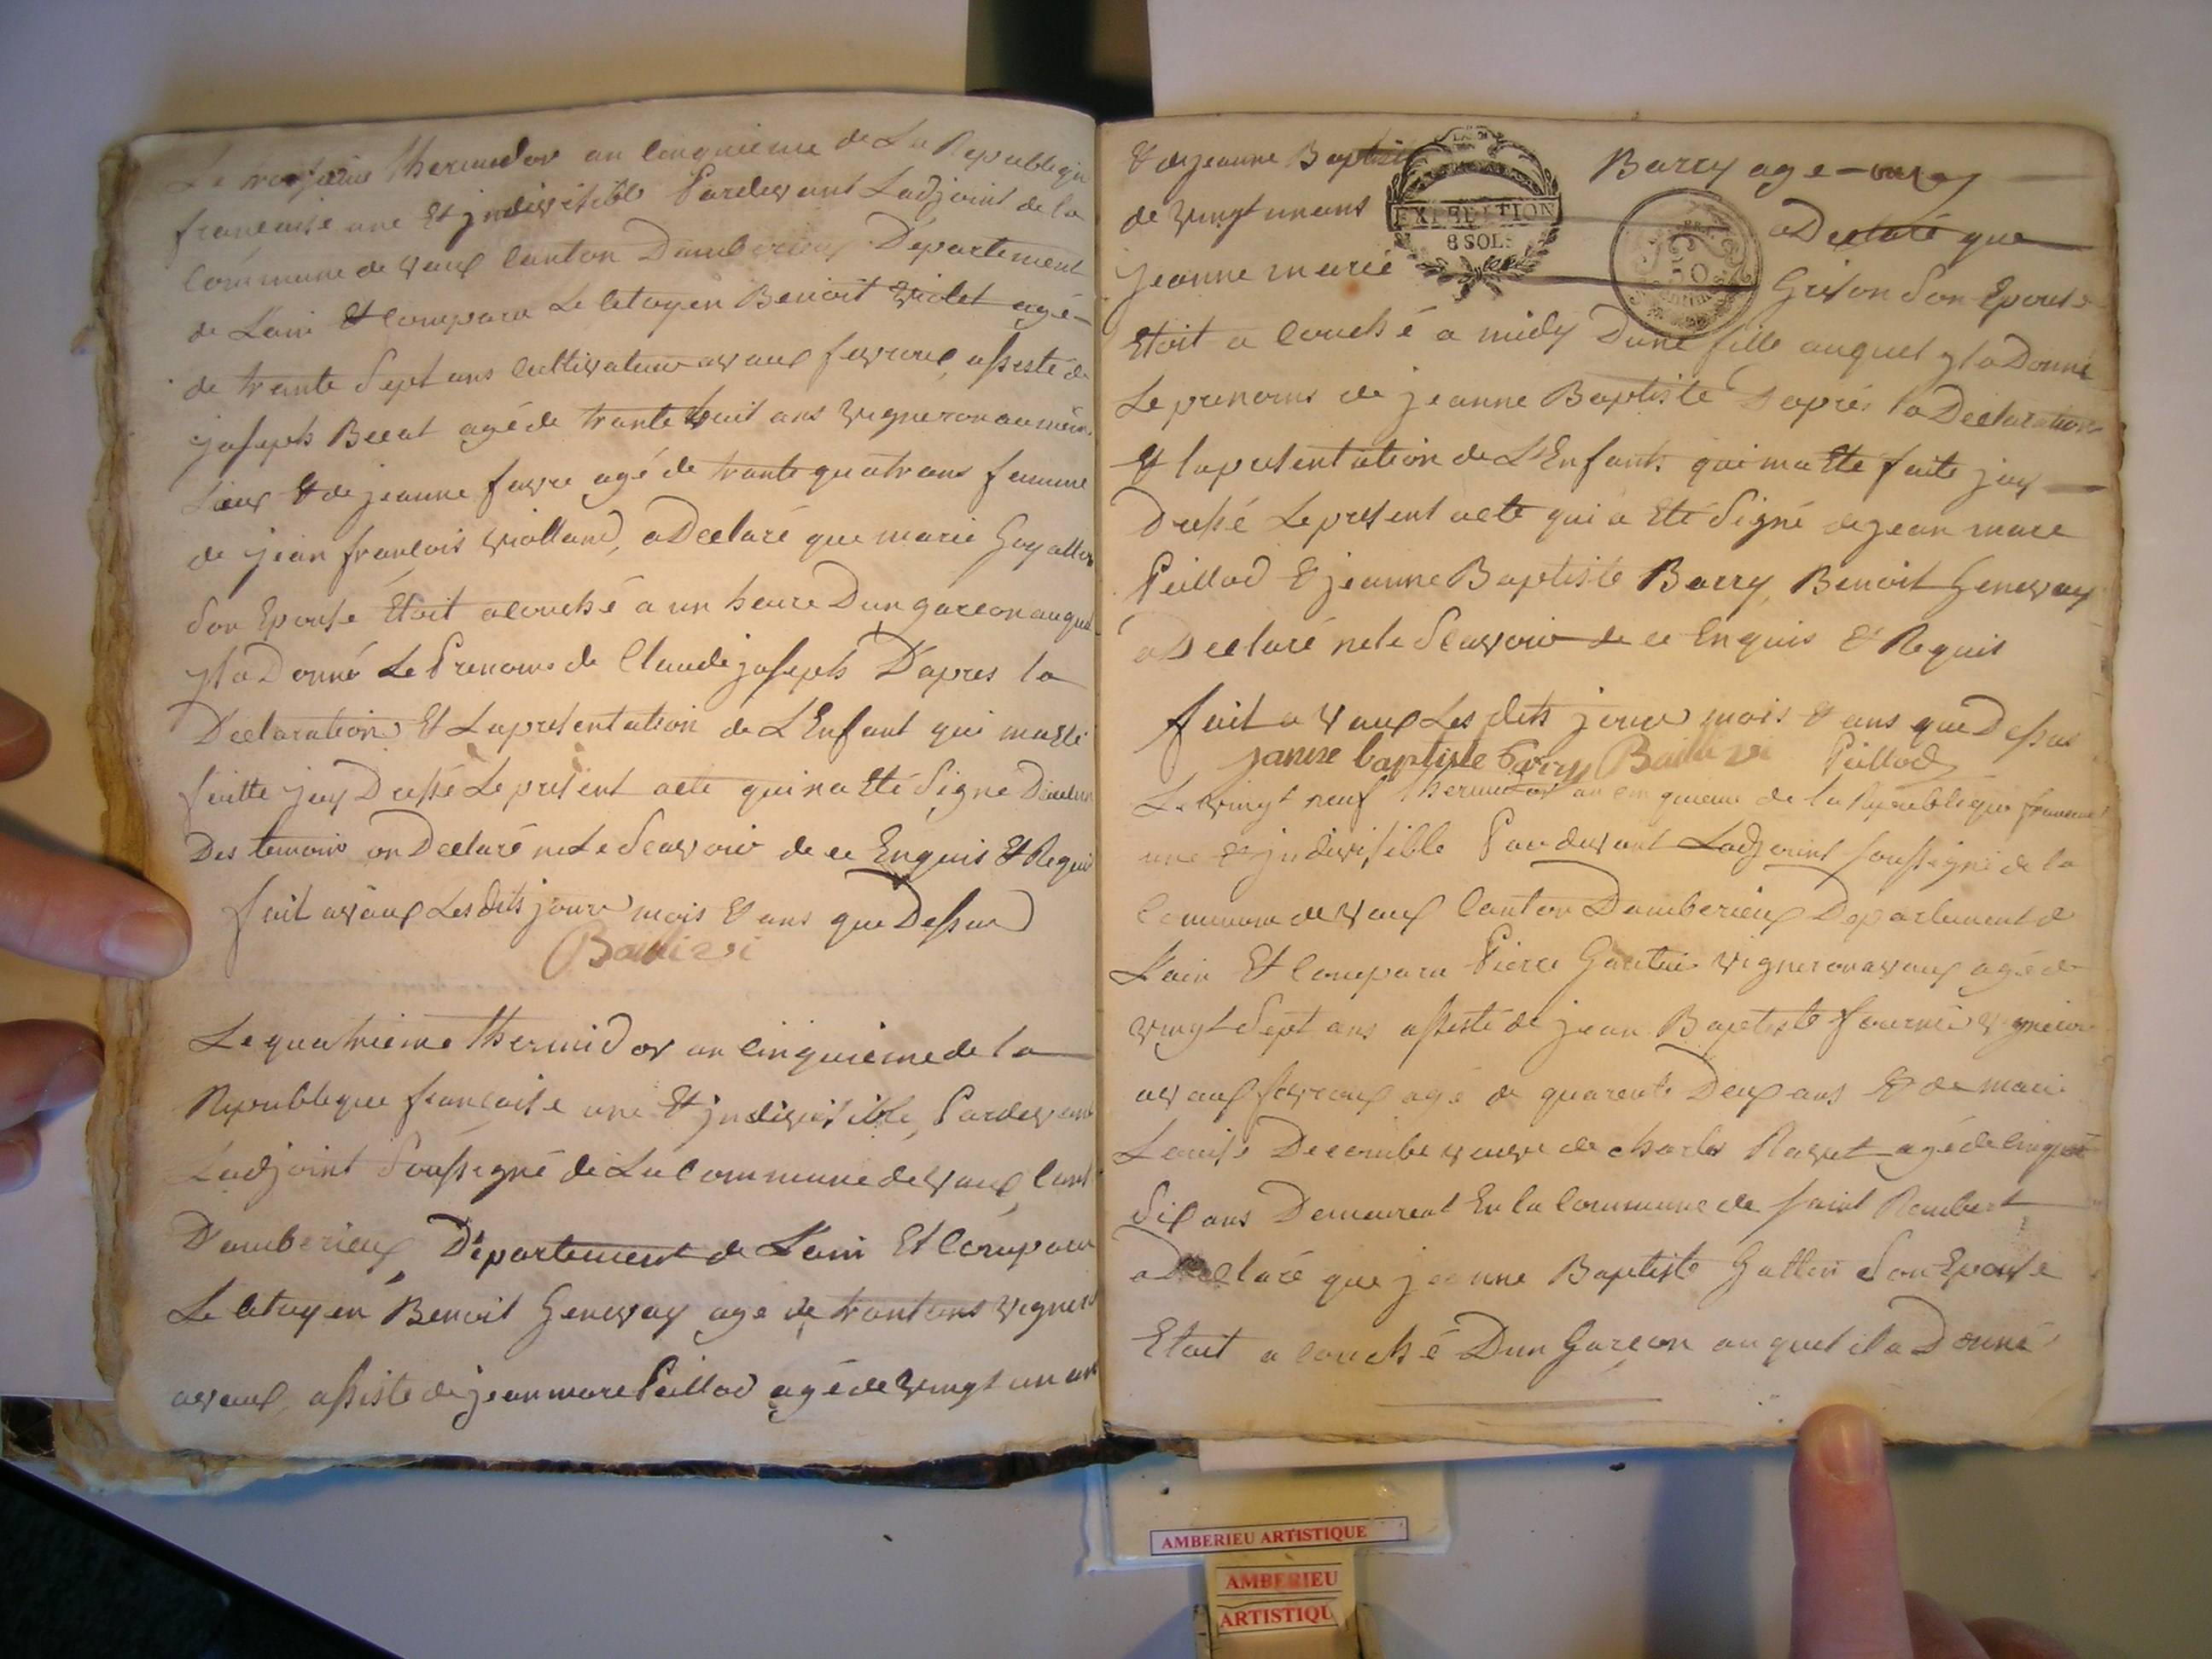 Le troisième thermidor an cinquieme de La Republiqu
francaise une Et jndivisible Pardevant Ladjoint de la
Commune de vaux Canton Damberieux Departement
de Lain Et Compara Le Citoyen Benoit violet agé
de trante Sept ans Cultivateur a vaux fevroux, assisté de
joseph Becat agé de trante huit ans vigneron au même
Lieux & de jeanne favre agé de trante quatrans femme
de jean francois violland, a Declaré que marie
Son Epouse Etoit a couché a un heure Dun garcon auquel
yl a Donné Le Prenoms de Claude joseph D'apres la
Declaration Et La presentation de L'Enfant qui ma Eté
faitte jay Dressé Le present acte qui na Eté Signé
Des temoins on Declaré ne Le Scavoir de ce Enquis & Requis
fait a vaux Les dits jour mois & ans que Dessus
Le quatrieme thermidor an cinquieme de la
Republique francaise une Et jndivisible, Pardevant
Ladjoint Soussigné de La Commune de vaux, Cant
D'amberieux, Departement de Lain Et Compara
Le Citoyen Benoit Genevay age de trantans vigneron
a vaux, assisté de jean marc Peillod agé de vingt un ans
& de jeanne Baptiste Barry age
de vingt un ans a Declaré que
jeanne marie Grison Son Epouse
EXPEDITION
8 SOLS
50
Centimes
Etoit a couché a midy Dune fille auquel yl a Donné
Le prenoms de jeanne Baptiste D'aprés la Declaration
& la presentation de L'Enfant qui ma Eté faite jay
Dressé Le present acte qui a Eté Signé de jean marc
Peillod & jeanne Baptiste Barry, Benoit Genevay
a Declaré ne le Scavoir de ce Enquis & Requis
fait a vaux Les dits jour mois & ans que Dessus
janne baptiste barry Peillod
Le vingt neuf thermidor an cinquieme de la Republique francaise
une & jndivisible Pardevant Ladjoint soussigné de la
Commune de vaux Canton Damberieux Departement de
Lain Et Compara Pierre vigneron a vaux agé de
vingt Sept ans assisté de jean Baptiste fournier vigneron
a vaux fevroux agé de quarente Deux ans & de marie
Louise Decombe veuve de charles Ravet agé de cinquante
Six ans Demeurent En la Commune de saint Rambert
a Declaré que jeanne Baptiste Son Epouse
Etait a couché Dun Garcon auquel il a Donné
AMBERIEU ARTISTIQUE
AMBERIEU
ARTISTIQU